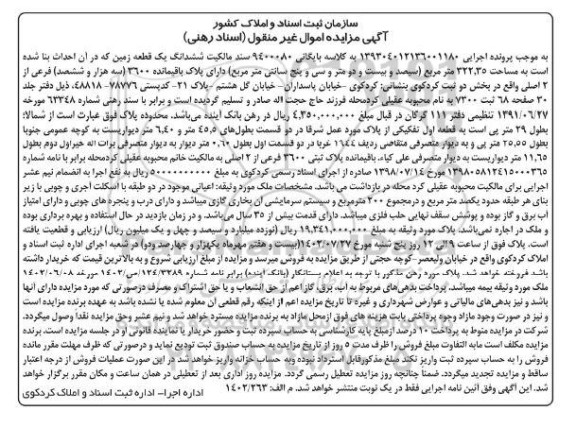 سازمان ثبت اسناد و املاک کشور
آگهی مزایده اموال غیر منقول (اسناد رهنی)
به موجب پرونده اجرایی ۱۳۹۳۰۴۰۱۲۱۳۶۰۰۱۱۸۰ به کلاسه بایگانی ۹۴۰۰۰۸۰ سند مالکیت ششدانگ یک قطعه زمین که در آن احداث بنا شده
است به مساحت ۳۲۲,۳۵ متر مربع (سیصد و بیست و دو متر و سی و پنج سانتی متر مربع) دارای پلاک باقیمانده ۳۶۰۰ (سه هزار و ششصد) فرعی از
۲ اصلی واقع در بخش دو ثبت کردکوی بنشانی: کردکوی -خیابان پاسداران - خیابان گل هشتم -پلاک ۲۱- کدپستی ۷۸۷۷۶-۴۸۸۱۸، ذیل دفتر جلد
۳۰ صفحه ۶۸ ثبت ۷۳۰۰ به نام محبوبه عقیلی کردمحله فرزند حاج حجت اله صادر و تسلیم گردیده است و برابر با سند رهنی شماره ۶۳۳۴۸ مورخه
۱۳۹۱/۰۶/۲۷ تنظیمی دفتر ۱۱۱ گرگان در قبال مبلغ ۴,۳۵۰,۰۰۰,۰۰۰ ریال در رهن بانک آینده می‌باشد. محدوده پلاک فوق عبارت است از شمالا:
بطول ۲۹ متر پی است به قطعه اول تفکیکی از پلاک مورد عمل شرقا در دو قسمت بطول‌های ۵,۴۵ متر و ۶,۴۰ متر دیواریست به کوچه عمومی جنوبا
بطول ۲۵,۵۵ متر پی و به دیوار متصرفی متقاسی ردیف ۱۶۴۴ خربا در دو قسمت اول بطول ۰,۶۰ متر دیوار به دیوار متصرفی برات اله خیراول دوم بطول
۱۱,۶۵ متر دیواریست به دیوار متصرفی علی کیاء. باقیمانده پلاک ثبتی ۳۶۰۰ فرعی از ۲ اصلی به مالکیت خانم محبوبه عقیلی کردمحله برابر با نامه شماره
۱۳۹۸۰۵۸۱۲۴۱۵۰۰۰۳۶۵ مورخ ۱۳۹۸/۰۷/۱۴ صادره از اجرای اسناد رسمی کردکوی به مبلغ ۵۰۰۰۰۰۰۰۰۰۰ ریال به نفع اجرا به انضمام نیم عشر
اجرایی برای مالکیت محبوبه عقیلی کرد محله در بازداشت می باشد. مشخصات ملک مورد وثیقه: اعیانی موجود در دو طبقه با اسکلت آجری و چوبی با زیر
بنای هر طبقه حدود یکصد متر مربع و درمجموع ۲۰۰ مترمربع و سیستم سرمایشی آن بخاری گازی میباشد و دارای درب و پنجره های چوبی و دارای امتیاز
آب برق و گاز بوده و پوشش سقف نهایی حلب فلزی میباشد. دارای قدمت بیش از ۳۵ سال می‌باشد. و در زمان بازدید در حال استفاده و بهره برداری بوده
و ملک در اجاره نمی‌باشد. پلاک مورد وثیقه به مبلغ ۱۹,۳۴۱,۰۰۰,۰۰۰ ریال (نوزده میلیارد و سیصد و چهل و یک میلیون ریال) ارزیابی و قطعیت یافته
است. پلاک فوق از ساعت ۹ الی ۱۲ روز پنج شنبه مورخ ۱۴۰۲/۰۷/۲۷(بیست و هفتم مهرماه یکهزار و چهارصد ودو) در شعبه اجرای اداره ثبت اسناد و
املاک کردکوی واقع در خیابان ولیعصر-کوچه حجتی از طریق مزایده به فروش میرسد و مزایده از مبلغ ارزیابی شروع و به بالاترین قیمت که خریدار داشته
باشد فروخته خواهد شد. پلاک مورد رهن مذکور با توجه به اعلام بستانکار (بانک آینده) برابر نامه شماره مورخه ۱۴۰۲/۰۵/۰۸
ملک مورد وثیقه بیمه میباشد. پرداخت بدهی‌های مربوط به آب، برق، گاز اعم از حق انشعاب و یا حق اشتراک و مصرف درصورتی که مورد مزایده دارای آنها
باشد و نیز بدهی‌های مالیاتی و عوارض شهرداری و غیره تا تاریخ مزایده اعم از اینکه رقم قطعی آن معلوم شده یا نشده باشد به عهده برنده مزایده است
و نیز در صورت وجود مازاد وجوه پرداختی بابت هزینه های فوق ازمحل مازاد به برنده مزایده مسترد خواهد شد و نیم عشر و حق مزایده نقدا وصول میگردد.
شرکت در مزایده منوط به پرداخت ۱۰ درصد ازمبلغ پایه کارشناسی به حساب سپرده ثبت و حضور خریدار یا نماینده قانونی او در جلسه مزایده است. برنده
مزایده مکلف است مابه التفاوت مبلغ فروش را ظرف مدت ۵ روز از تاریخ مزایده به حساب صندوق ثبت تودیع نماید و درصورتی که ظرف مهلت مقرر مانده
فروش را به حساب سپرده ثبت واریز نکند مبلغ مذکورقابل استرداد نبوده وبه حساب خزانه واریز خواهد شد در این صورت عملیات فروش از درجه اعتبار
ساقط و مزایده تجدید میگردد. ضمناً چنانچه روز مزایده تعطیل رسمی گردد. مزایده روز اداری بعد از تعطیلی در همان ساعت و مکان مقرر برگزار خواهد
شد. این آگهی وفق آئین نامه اجرایی فقط در یک نوبت منتشر خواهد شد. م الف: ۱۴۰۲/۲۶۳
اداره اجرا- اداره ثبت اسناد و املاک کردکوی